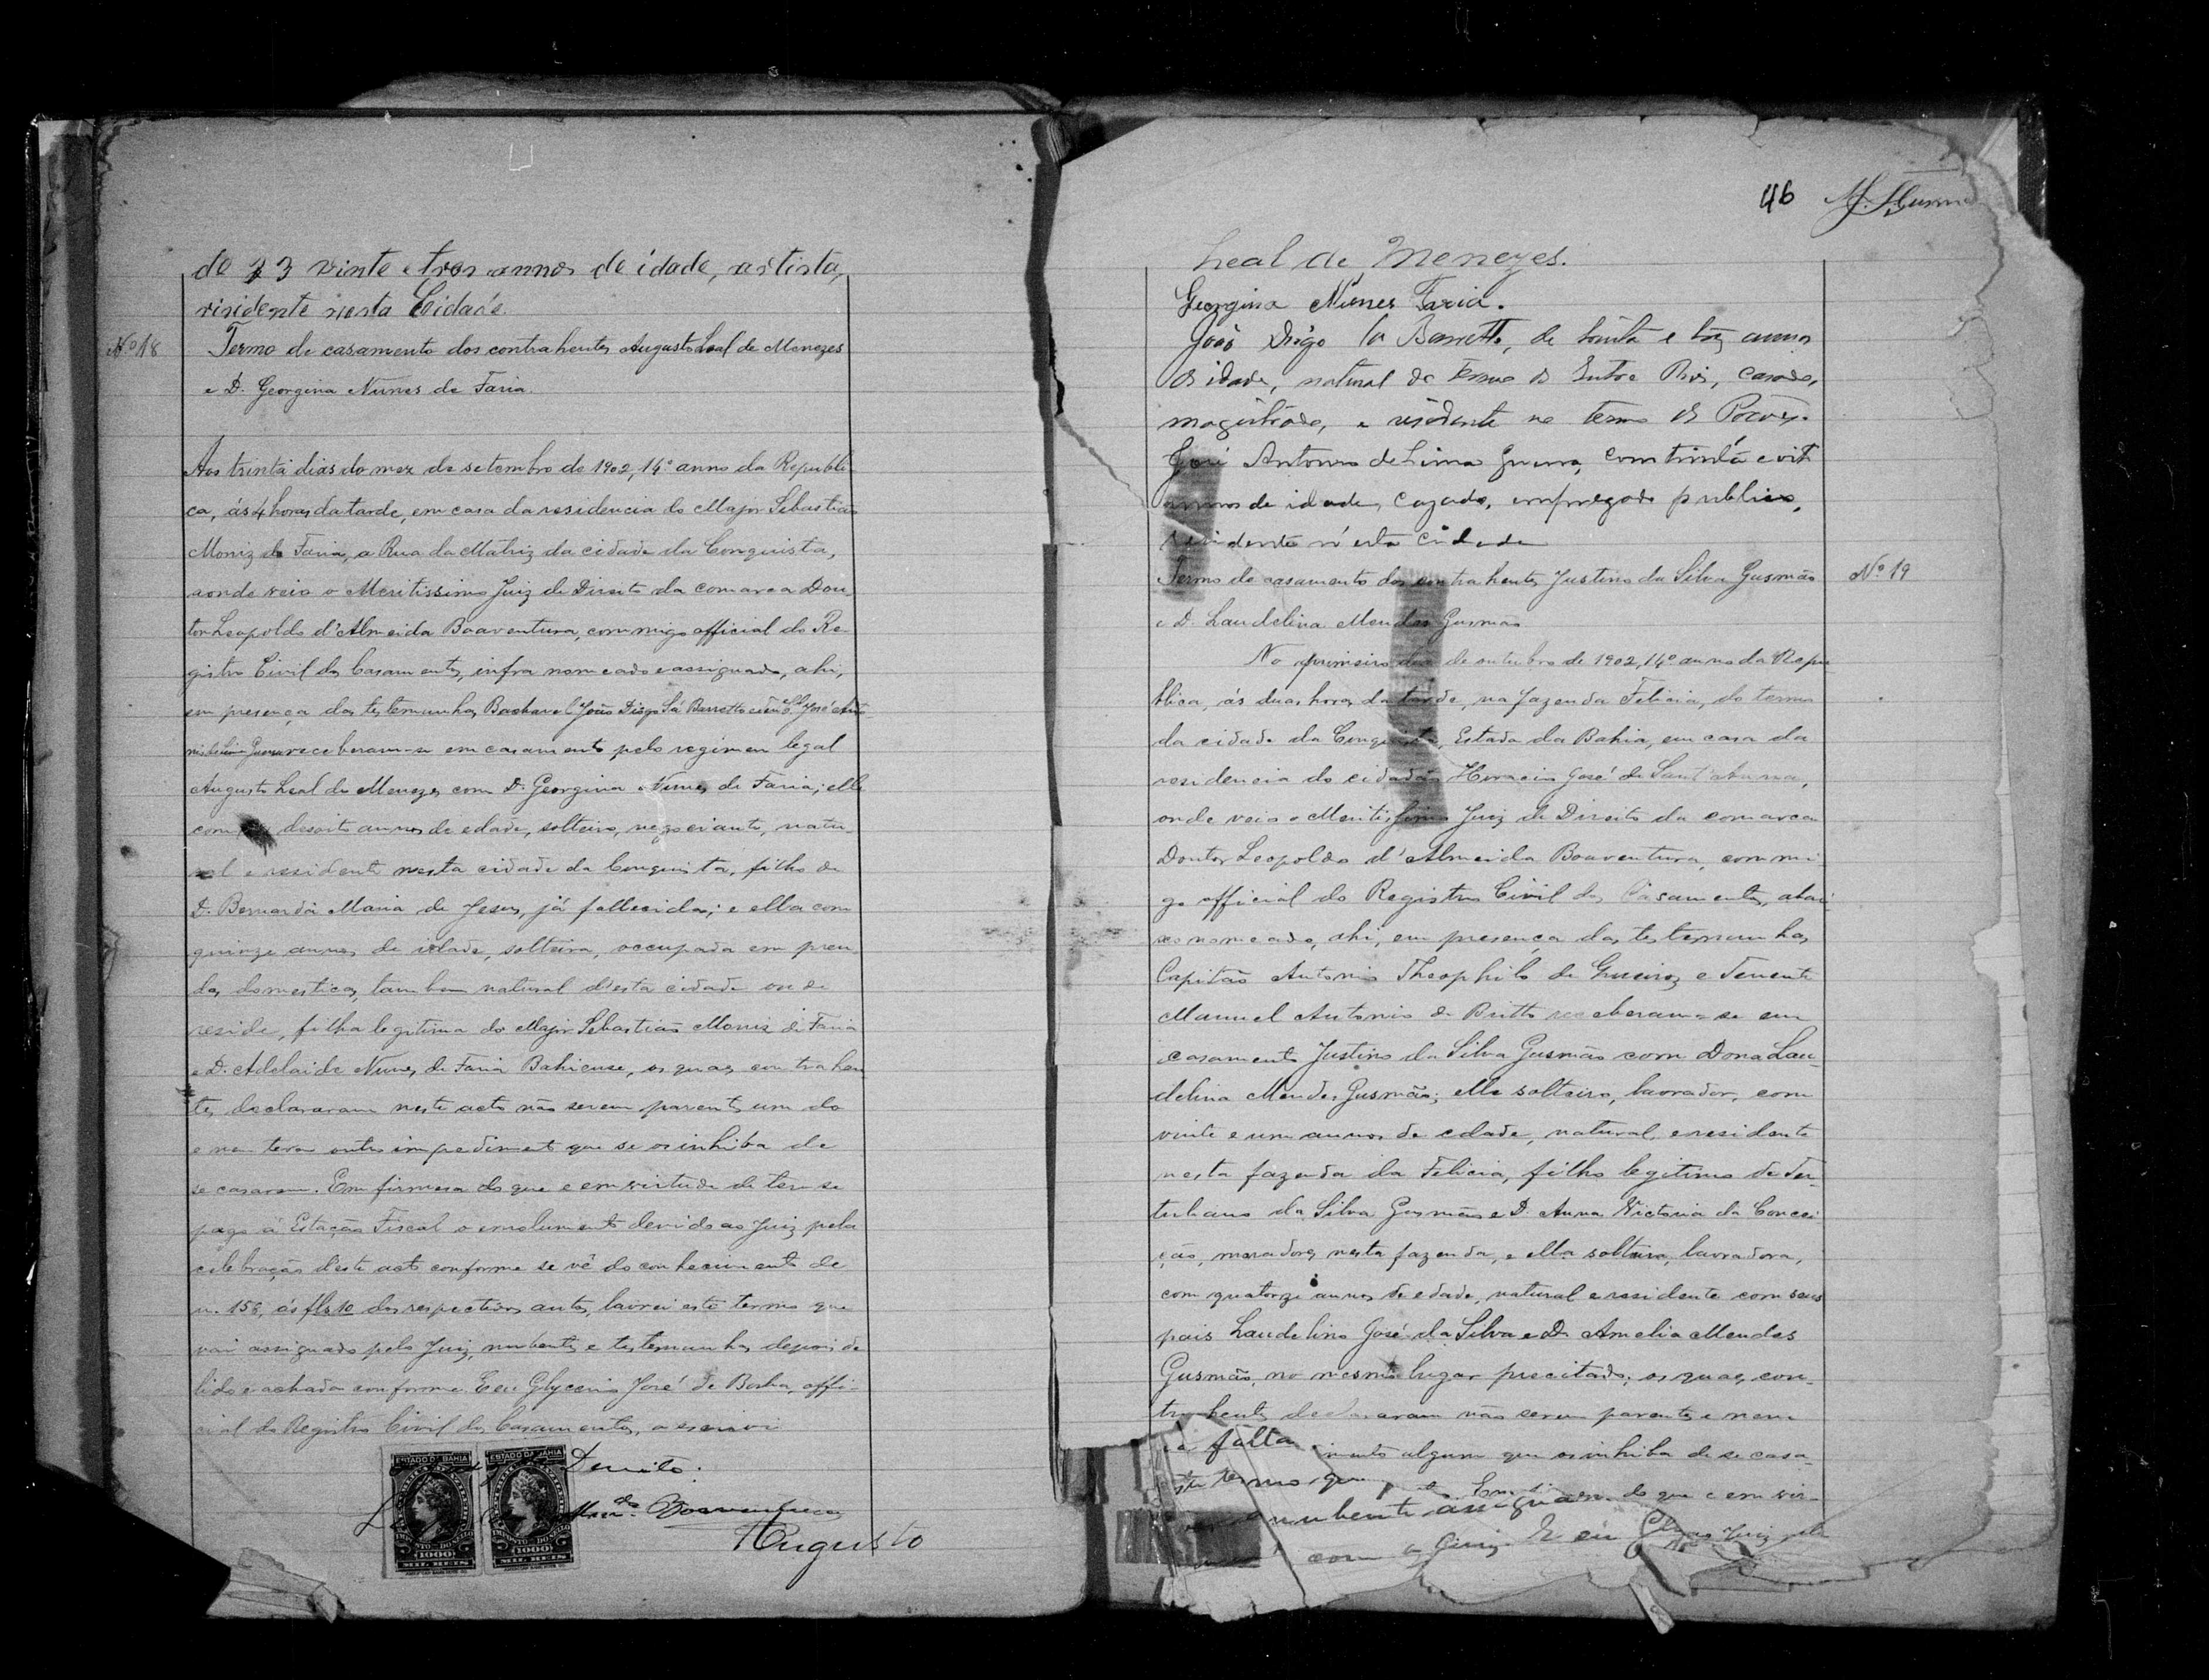 de 23 vinte e tres annos de idade, artista,
risidente nesta Cidade.
Nº 18
Termo de casamento dos contrahentes Augusto Leal de Menezes
e D. Georgina Nunes de Faria.
Aos trinta dias do mez de setembro de 1902, 14º anno da Republi
ca, ás 4 horas da tarde, em casa da residencia do Major Sebastião
Moniz de Faria, a Rua da Matriz da cidade da Conquista,
aonde veio o Meritissimo Juiz de Direito da comarca Dou
tor Leopoldo d'Almeida Boaventura, commigo official do Re
gistro Civil dos Casamentos, infra nomeado e assignado, ahi,
em presença das testemunhas Bacharel João Diogo Sá Barretto e José Anto
nio de Lima Guerra receberam-se em casamento pelo regimen legal
Augusto Leal de Menezes com D. Georgina Nunes de Faria; elle
com desoito annos de edade, solteiro, negociante, natu
ral e residente nesta cidade da Conquista, filho de
D. Bernarda Maria de Jesus, já fallecida; e ella com
quinze annos de idade, solteira, occupada em pren
das domesticas, tambem natural d'esta cidade onde
reside, filha legitima do Major Sebastião Moniz de Faria
e D. Adelaide Nunes de Faria Bahiense, os quaes contrahen
tes declararam neste acto não serem parentes um do
e nem terem outro impedimento que se os inhiba de
se casarem. Em firmesa do que e em virtude de ter-se
pago á Estação Fiscal o emolumento devido ao Juiz pela
celebração deste acto conforme se vê do conhecimento de
n. 158, ás fls 10 dos respectivos autos, lavrei este termo que
vai assignado pelo Juiz, nubentes e testemunhas depois de
lido e achado conforme. Eu Glycerio José de Borba, offi-
cial do Registro Civil dos Casamentos, o escrevi
ESTADO DA BAHIA
ESTADO DA BAHIA
1000
MIL REIS
1000
MIL REIS
Boaventura
Augusto
46
Leal de Menezes.
Georgina Nunes Faria.
João Diogo Sá Barretto, de trinta e tres annos
de idade, natural do termo de Entre Rios, casado,
magistrado, e residente no termo de Poções.
José Antonio de Lima Guerra, com trinta e oito
annos de idade, cazado, empregado publico,
residente n'esta cidade
Nº 19
Termo de casamento dos contrahentes Justino da Silva Gusmão
e D. Laudelina Mendes Gusmão
No primeiro dia de outubro de 1902, 14º anno da Repu
blica, ás duas horas da tarde, na fazenda Felicia, do termo
da cidade da Conquista, Estado da Bahia, em casa da
residencia do cidadão Horacio José de Sant'Anna,
onde veio o Meritissimo Juiz de Direito da comarca
Doutor Leopoldo d'Almeida Boaventura, commi
go official do Registro Civil dos Casamentos, abai
xo nomeado, ahi, em presença das testemunhas
Capitão Antonio Theophilo de Queiroz e Tenente
Manuel Antonio de Britto receberam-se em
casamento Justino da Silva Gusmão com Dona Lau-
delina Mendes Gusmão; elle solteiro, lavrador, com
vinte e um annos de edade, natural e residente
nesta fazenda da Felicia, filho legitimo de Ter-
tuliano da Silva Gusmão e D. Anna Victoria da Concei
ção, moradores nesta fazenda, e ella solteira, lavradora,
com quatorze annos de edade, natural e residente com seus
pais Laudelino José da Silva e D. Amelia Mendes
Gusmão, no mesmo lugar precitado; os quaes con-
trahentes declararam não serem parentes e nem
falta mento algum que os inhiba de se casa-
este termo que do que e em vir-
nubente assignam
com o Juiz E eu Juiz pela